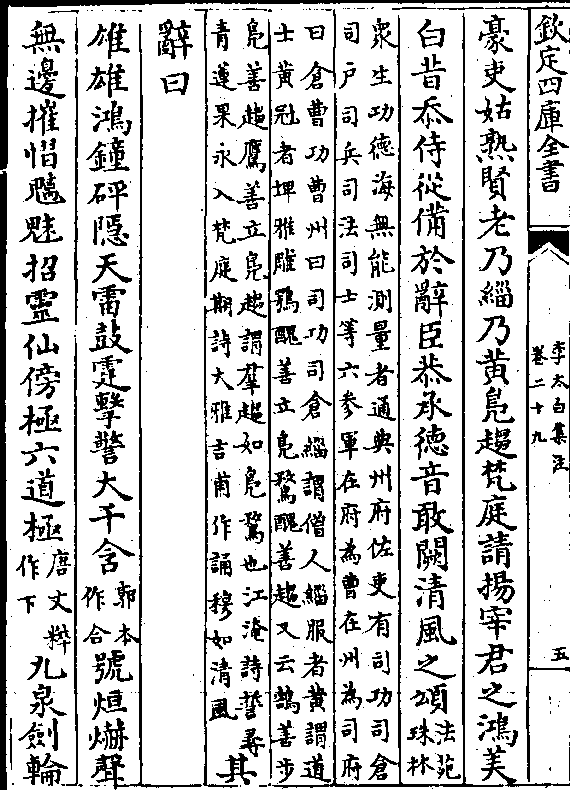 欽定四庫全書
李太白集注
卷二十九
五
豪吏姑熟賢老乃緇乃黄鳬趨梵庭請揚宰君之鴻美
白昔忝侍從備於辭臣恭承德音敢闕清風之頌法苑
珠林
衆生功德海無能測量者通典州府佐吏有司功司倉
司戶司兵司法司士等六參軍在府為曹在州為司府
曰倉曹功曹州曰司功司倉緇謂僧人緇服者黄謂道
士黄冠者埤雅雕鶚醜善立鳬鶩醜善趨又云鵠善步
鳬善趨鷹善立鳬趨謂羣趨如鳬鶩也江淹詩誓尋
青蓮果永入梵庭期詩大雅吉甫作誦穆如清風其
辭曰
雄雄鴻鐘砰隠天雷鼓霆擊警大千含郭本
作合號烜爀聲
無邊摧慴魑魅招靈仙傍極六道極唐文粹
作下九泉劍輪